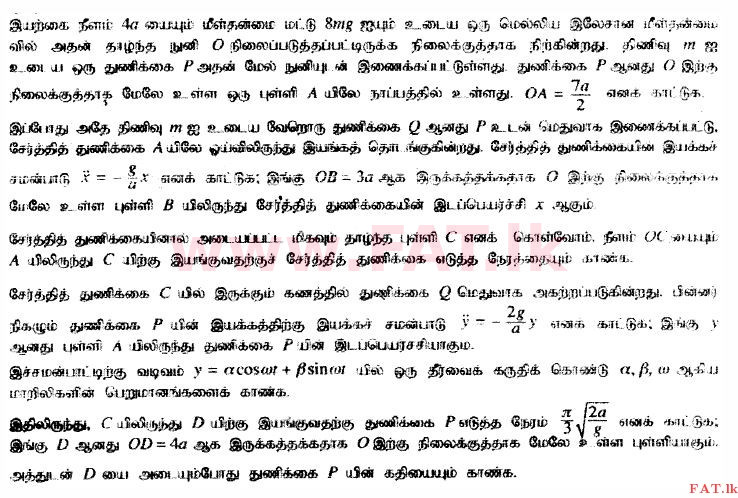 இயற்கை நீளம் 4a யையும் மீள்தன்மை மட்டு 8mg ஐயும் உடைய ஒரு மெல்லிய இலேசான மீள்தன்மை
வில் அதன் தாழ்ந்த நுனி O நிலைப்படுத்தப்பட்டிருக்க நிலைக்குத்தாக நிற்கின்றது. திணிவு m ஐ
உடைய ஒரு துணிக்கை P அதன் மேல் நுனியுடன் இணைக்கப்பட்டுள்ளது. துணிக்கை P ஆனது O இற்கு
நிலைக்குத்தாக மேலே உள்ள ஒரு புள்ளி A யிலே நாப்பத்தில் உள்ளது. OA = 7a/2 எனக் காட்டுக.
இப்போது அதே திணிவு m ஐ உடைய வேறொரு துணிக்கை Q ஆனது P உடன் மெதுவாக இணைக்கப்பட்டு,
சேர்த்தித் துணிக்கை A யிலே ஓய்விலிருந்து இயங்கத் தொடங்குகின்றது. சேர்த்தித் துணிக்கையின் இயக்கச்
சமன்பாடு ẍ = − g/a x எனக் காட்டுக; இங்கு OB = 3a ஆக இருக்கத்தக்கதாக O இற்கு நிலைக்குத்தாக
மேலே உள்ள புள்ளி B யிலிருந்து சேர்த்தித் துணிக்கையின் இடப்பெயர்ச்சி x ஆகும்.
சேர்த்தித் துணிக்கையினால் அடையப்பட்ட மிகவும் தாழ்ந்த புள்ளி C எனக் கொள்வோம். நீளம் OC யையும்
A யிலிருந்து C யிற்கு இயங்குவதற்குச் சேர்த்தித் துணிக்கை எடுத்த நேரத்தையும் காண்க.
சேர்த்தித் துணிக்கை C யில் இருக்கும் கணத்தில் துணிக்கை Q மெதுவாக அகற்றப்படுகின்றது. பின்னர்
நிகழும் துணிக்கை P யின் இயக்கத்திற்கு இயக்கச் சமன்பாடு ÿ = − 2g/a y எனக் காட்டுக; இங்கு y
ஆனது புள்ளி A யிலிருந்து துணிக்கை P யின் இடப்பெயர்ச்சியாகும்.
இச்சமன்பாட்டிற்கு வடிவம் y = αcosωt + βsinωt யில் ஒரு தீர்வைக் கருதிக் கொண்டு α, β, ω ஆகிய
மாறிலிகளின் பெறுமானங்களைக் காண்க.
இதிலிருந்து, C யிலிருந்து D யிற்கு இயங்குவதற்கு துணிக்கை P எடுத்த நேரம் π/3 √(2a/g) எனக் காட்டுக;
இங்கு D ஆனது OD = 4a ஆக இருக்கத்தக்கதாக O இற்கு நிலைக்குத்தாக மேலே உள்ள புள்ளியாகும்.
அத்துடன் D யை அடையும்போது துணிக்கை P யின் கதியையும் காண்க.
www.FAT.lk
FAT.lk